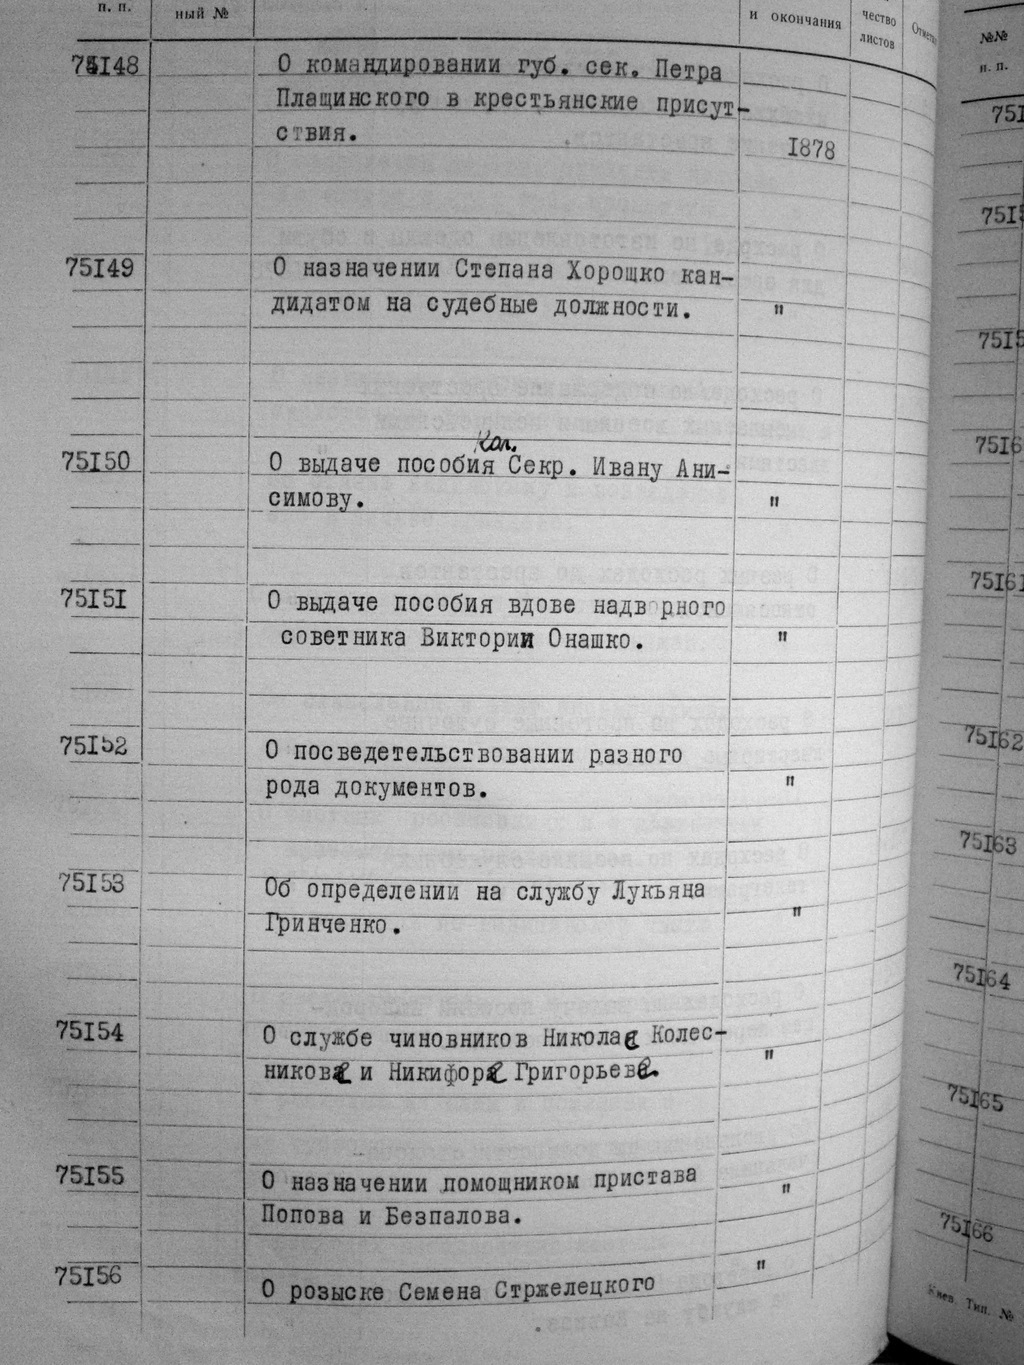 п. п.
ный №
и окончания
чество
листов
75I48
О командировании губ. сек. Петра
Плащинского в крестьянские присут-
ствия.
I878
75I49
О назначении Степана Хорошко кан-
дидатом на судебные должности.
"
75I50
Кол.
О выдаче пособия Секр. Ивану Ани-
симову.
"
75I5I
О выдаче пособия вдове надв рного
советника Виктории Онашко.
"
75I52
О посведетельствовании разного
рода документов.
"
75I53
Об определении на службу Лукьяна
Гринченко.
"
75I54
О службе чиновников Николая Колес-
никова и Никифора Григорьева.
"
75I55
О назначении помощником пристава
Попова и Безпалова.
"
75I56
О розыске Семена Стржелецкого
"
№№
п. п.
75I61
75I62
75I63
75I64
75I65
75I66
Киев. Тип. №